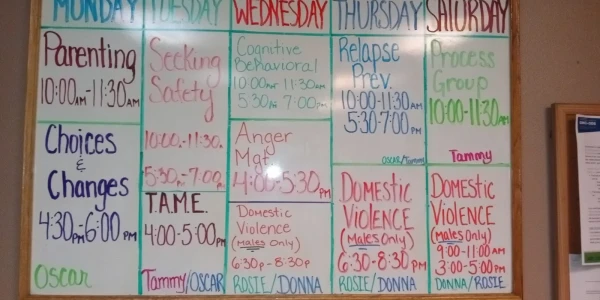 MONDAY
Parenting
10:00AM-11:30AM
Choices
&
Changes
4:30PM-6:00PM
Oscar
TUESDAY
Seeking
Safety
10:00-11:30
5:30-7:00
T.A.M.E.
4:00-5:00PM
Tammy/OSCAR
WEDNESDAY
Cognitive
Behavioral
10:00AM 11:30AM
5:30 7:00PM
Anger
4:00-5:30PM
Domestic
Violence
(Males Only)
6:30P-8:30P
ROSIE/DONNA
THURSDAY
Relapse
Prev.
10:00-11:30AM
5:30-7:00PM
OSCAR/Tammy
DOMESTIC
VIOLENCE
(Males Only)
6:30-8:30PM
ROSIE/DONNA
SATURDAY
Process
Group
10:00-11:30AM
Tammy
DOMESTIC
VIOLENCE
(MALES ONLY)
9:00-11:00AM
3:00-5:00PM
DONNA/ROSIE